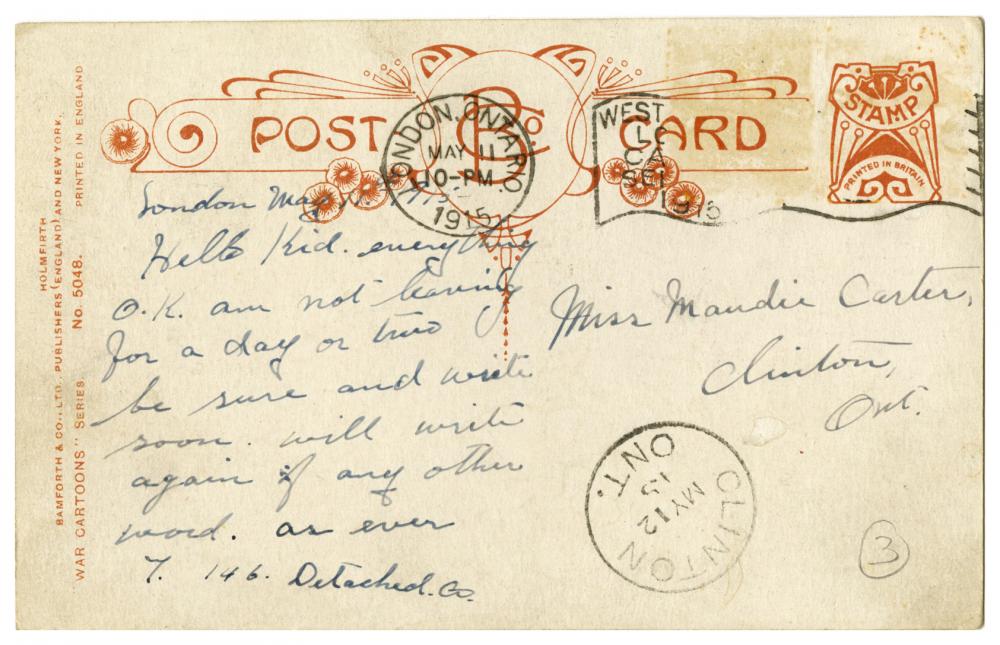 POST CARD
B & Co
STAMP
PRINTED IN BRITAIN
LONDON, ONTARIO
MAY 11
10-PM
1915
WEST
1915
London May
Hello Kid. everything
O.K. am not leaving
for a day or two
be sure and write
soon. will write
again if any other
word. as ever
7. 146. Detached. Co.
Miss Maudie Carter,
Clinton,
Ont.
CLINTON
MY 12
15
ONT.
3
HOLMFIRTH
BAMFORTH & CO., LTD., PUBLISHERS (ENGLAND) AND NEW YORK.
WAR CARTOONS" SERIES No. 5048. PRINTED IN ENGLAND